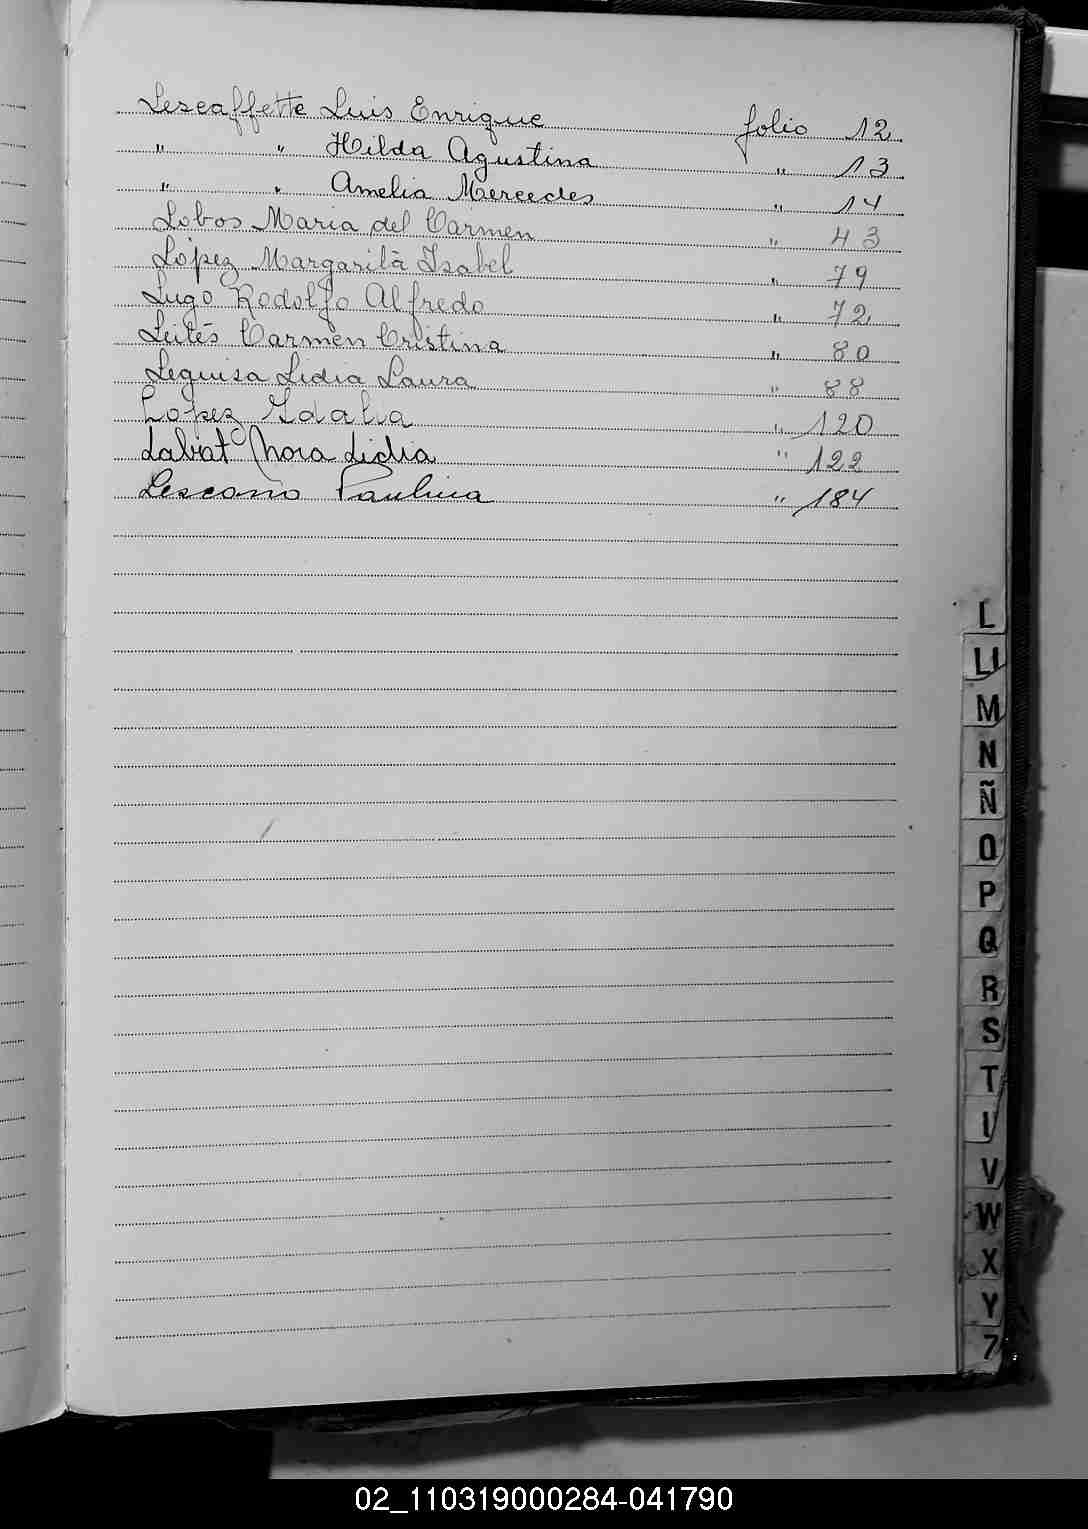 Lescaffette Luis Enrique folio 12
" " Hilda Agustina " 13
" " Amelia Mercedes " 14
Lobos Maria del Carmen " 43
López Margarita Isabel " 79
Lugo Rodolfo Alfredo " 72
Leites Carmen Cristina " 80
Leguisa Lidia Laura " 88
Lopez Idalia " 120
Labiat Nora Lidia " 122
Lescano Paulina " 184
L
Ll
M
N
Ñ
O
P
Q
R
S
T
V
W
X
Y
02_110319000284-041790